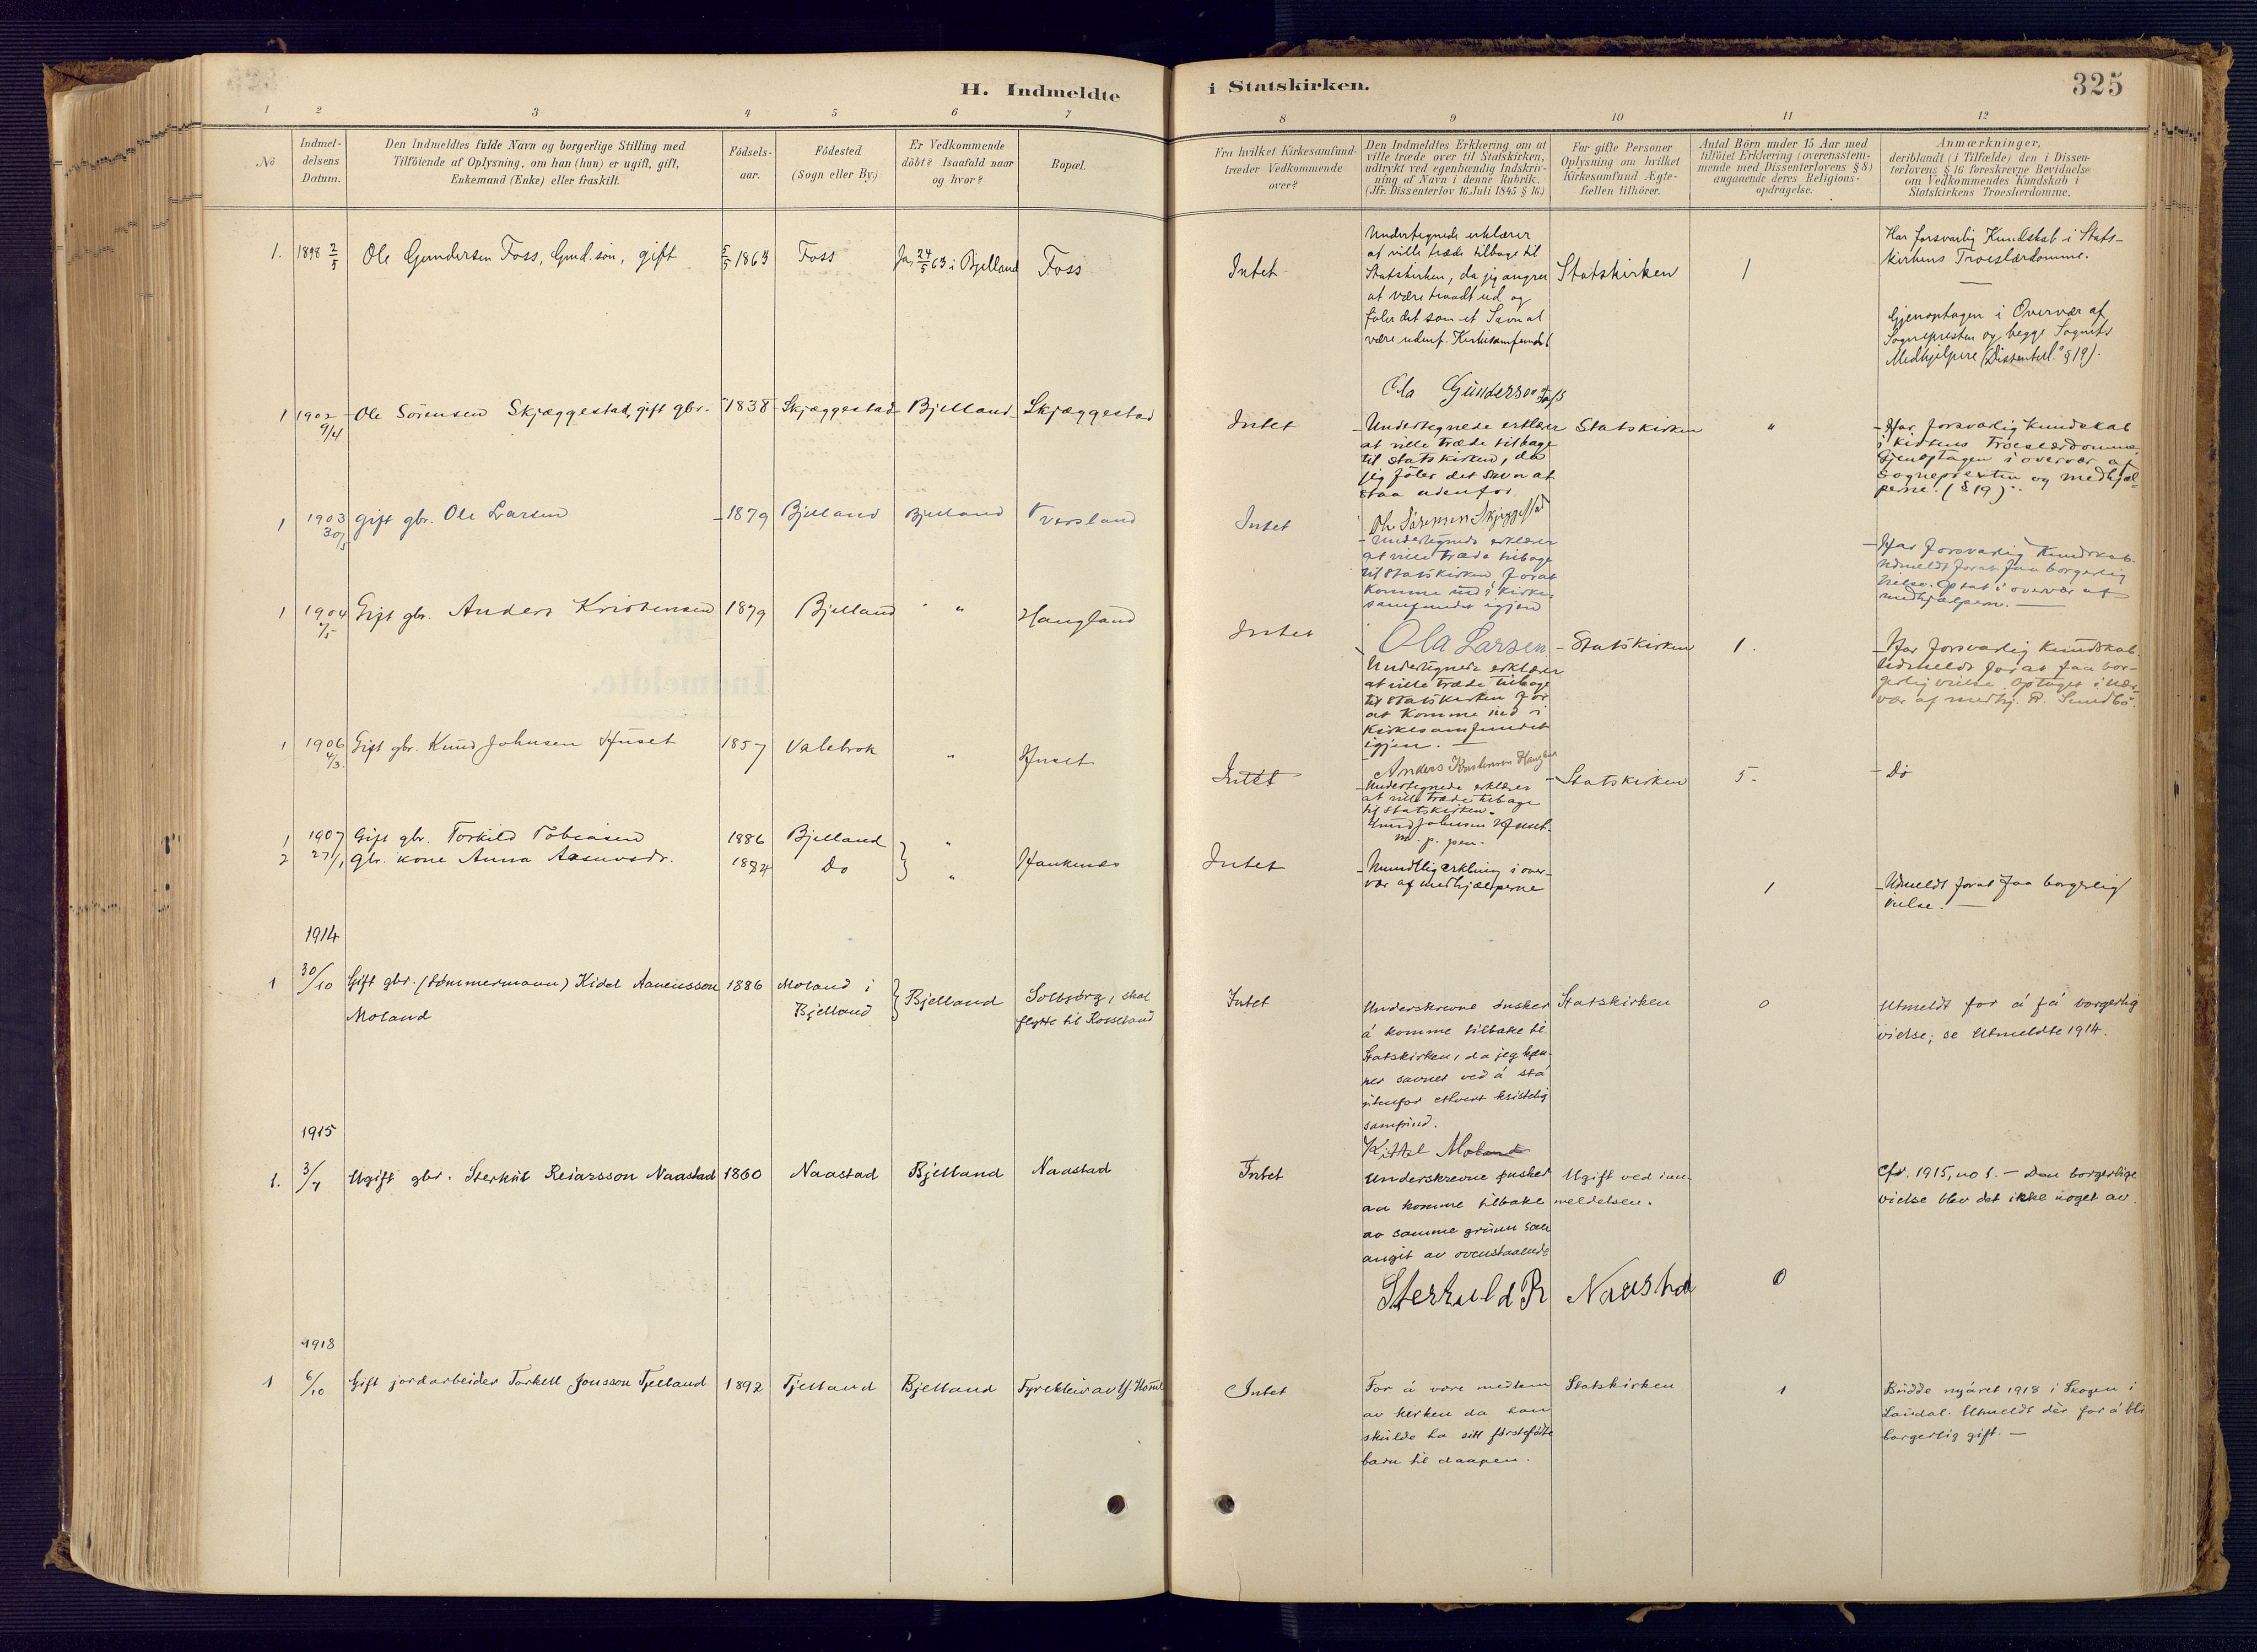 H. Indmeldte i Statskirken.
325
1 2 3 4 5 6 7 8 9 10 11 12
No
Indmeldelsens Datum.
Den Indmeldtes fulde Navn og borgerlige Stilling med
Tilföiende af Oplysning, om han (hun) er ugift, gift,
Enkemand (Enke) eller fraskilt.
Födsels-
aar.
Födested
(Sogn eller By.)
Er Vedkommende
döbt? Isaafald naar
og hvor?
Bopæl.
Fra hvilket Kirkesamfund
træder Vedkommende
over?
Den Indmeldtes Erklæring om at
ville træde over til Statskirken,
udtrykt ved egenhændig Indskriv-
ning af Navn i denne Rubrik.
(Jfr. Dissenterlov 16 Juli 1845 § 16)
For gifte Personer
Oplysning om hvilket
Kirkesamfund Ægte-
fællen tilhörer.
Antal Börn under 15 Aar med
tilföiet Erklæring (overensstem-
mende med Dissenterlovens § 8)
angaaende deres Religions-
opdragelse.
Anmærkninger,
deriblandt (i Tilfælde) den i Dissen-
terlovens § 16 foreskrevne Bevidnelse
om Vedkommendes Kundskab i
Statskirkens Troeslærdomme.
1. 1898 2/5 Ole Gundersen Foss, Gmd. sön, gift 5/5 1863 Foss Ja, 24/5 63 i Bjelland Foss
Intet
Undertegnede erklærer
at ville træde tilbage til
Statskirken, da jeg angrer
at være traadt ud og
föler det som et Savn at
være udenf. Kirkesamfundet
Ola Gunderson Foss
Statskirken
1
Har forsvarlig Kundskab i Stats-
kirkens Troeslærdomme.
Gjenoptagen i Overvær af
Sognepresten og begge Sognets
Medhjelpere (Dissenterl. § 19).
1 1902 9/4 Ole Sörensen Skjæggestad, gift gbr. 1838 Skjæggestad Bjelland Skjæggestad
Intet
Undertegnede erklærer
at ville træde tilbage
til statskirken, da
jeg föler det savn at
staa udenfor
Ole Sörensen Skjeggestad
Statskirken
"
Har forsvarlig kundskab
i kirkens Troeslærdomme.
Gjenoptagen i overvær af
Sognepresten og medhjæl-
perne. (§ 19).
1 1903 30/5 gift gbr. Ole Larsen 1879 Bjelland Bjelland Tversland
Intet
Undertegnede erklærer
at ville træde tilbage
til statskirken for at
komme ind i kirke-
samfundet igjen
Ola Larsen
Har forsvarlig kundskab.
Udmeldt for at faa borgerlig
vielse. Optat i overvær af
medhjælpern.
1 1904 Gift gbr. Anders Kristensen 1879 Bjelland " " Haugland
Intet
Undertegnede erklærer
at ville træde tilbage
til statskirken for
at komme ind i
Kirkesamfundet
igjen.
Anders Kristensen
Statskirken
1.
Har forsvarlig kundskab.
Udmeldt for at faa bor-
gerlig vielse. Optaget i nær-
vær af medhj. R. Sundbö.
1 1906 4/3 Gift gbr. Knud Johnsen Huset 1857 Valebrok " Huset
Intet
Undertegnede erklærer
at ville træde tilbage
til statskirken.
Knud Johnsen Huset
m. p. pen.
Statskirken
5.
Do
1 1907 Gift gbr. Torkild Tobiasen 1886 Bjelland "
2 27/1 gbr. kone Anna Aasuvsdr. 1884 Do "
Intet
Mundtlig erklæring i over-
vær af medhjælperne
1
Udmeldt for at faa borgerlig
vielse.
1914
1 30/10 Gift gbr. (tömmermann) Kidel Aanensson 1886 Moland i Bjelland
Moland
Bjelland Solbjørg, skal
flytte til Rosseland
Intet
Underskrevne ønsker
å komme tilbake til
Statskirken, da jeg kjen-
ner savnet ved å stå
utenfor ethvert kristelig
samfund.
Kittel Moland
Statskirken
0
Utmeldt for å få borgerlig
vielse; se Utmeldte 1914.
1915
1. Ugift gbr. Sterkul Reiarsson Naastad 1860 Naastad Bjelland Naastad
Intet
Underskrevne ønsker
aa komme tilbake
av samme grunn som
angit av ovenstaaende
Sterkuld R Naastad
Ugift ved inn-
meldelsen.
0
Cfr. 1915, no 1. — Den borgerlige
vielse blev det ikke noget av.
1918
1 6/10 Gift jordarbeider Torkell Jonsson Tjelland 1892 Tjelland Bjelland
Intet
For å være medlem
av kirken da han
skulde ha sitt førstefødte
barn til daapen.
Statskirken
1
Budde nyåret 1918 i Skogen i
Laudal. Utmeldt dér for å bli
borgerlig gift. —